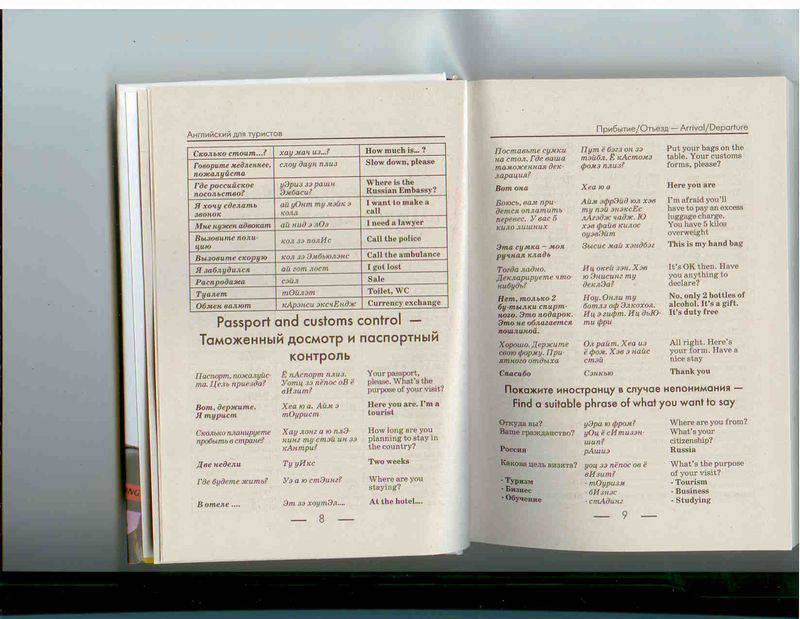 Английский для туристов
Сколько стоит...? хау мач из...? How much is... ?
Говорите медленнее, слоу даун плиз Slow down, please
пожалуйста
Где российское уЭриз зэ рашн Where is the
посольство? Эмбаси? Russian Embassy?
Я хочу сделать ай уОнт ту мэйк э I want to make a
звонок колл call
Мне нужен адвокат ай нид э лОэ I need a lawyer
Вызовите поли- кол зэ полИс Call the police
цию
Вызовите скорую кол зэ Эмбьюлэнс Call the ambulance
Я заблудился ай гот лост I got lost
Распродажа сэйл Sale
Туалет тОйлэт Toilet, WC
Обмен валют кАрэнси эксчЕндж Currency exchange
Passport and customs control —
Таможенный досмотр и паспортный
контроль
Паспорт, пожалуйс- Ё пАспорт плиз. Your passport,
та. Цель приезда? Уотц зэ пёпос оВ ё please. What's the
вИзит? purpose of your visit?
Вот, держите. Хеа ю а. Айм э Here you are. I'm a
Я турист тОурист tourist
Сколько планируете Хау лонг а ю плЭ- How long are you
пробыть в стране? нинг ту стэй ин зэ planning to stay in
кАнтри? the country?
Две недели Ту уИкс Two weeks
Где будете жить? Уэ а ю стЭинг? Where are you
staying?
В отеле .... Эт зэ хоутЭл.... At the hotel....
— 8 —
Прибытие/Отъезд — Arrival/Departure
Поставьте сумки Пут ё бэгз он зэ Put your bags on the
на стол. Где ваша тэйбл. Ё кАстомз table. Your customs
таможенная дек- фомз плиз? forms, please?
ларация?
Вот она Хеа ю а Here you are
Боюсь, вам при- Айм эфрЭйд юл хэв I'm afraid you'll
дется оплатить ту пэй экэксЕс have to pay an excess
перевес. У вас 5 лАгэдж чадж. Ю luggage charge.
кило лишних хэв файв килос You have 5 kilos
оуэвЭйт overweight
Эта сумка – моя Зысис май хэндбэг This is my hand bag
ручная кладь
Тогда ладно. Иц окей зэн. Хэв It's OK then. Have
Декларируете что- ю Энисинг ту you anything to
нибудь? деклЭа? declare?
Нет, только 2 Ноу. Онли ту No, only 2 bottles of
бу-тылки спирт- ботлз оф Элкохол. alcohol. It's a gift.
ного. Это подарок. Иц э гифт. Иц дьЮ- It's duty free
Это не облагается ти фри
пошлиной.
Хорошо. Держите Ол райт. Хеа из All right. Here's
свою форму. При- ё фом. Хэв э найс your form. Have a
ятного отдыха стэй nice stay
Спасибо Сэнкью Thank you
Покажите иностранцу в случае непонимания —
Find a suitable phrase of what you want to say
Откуда вы? уЭра ю фром? Where are you from?
Ваше гражданство? уОц ё сИтизэн- What's your
шип? citizenship?
Россия рАшиэ Russia
Какова цель визита? уоц зэ пёпос ов ё What's the purpose
вИзит? of your visit?
- Туризм - тОуризм - Tourism
- Бизнес - бИзнэс - Business
- Обучение - стАдинг - Studying
— 9 —